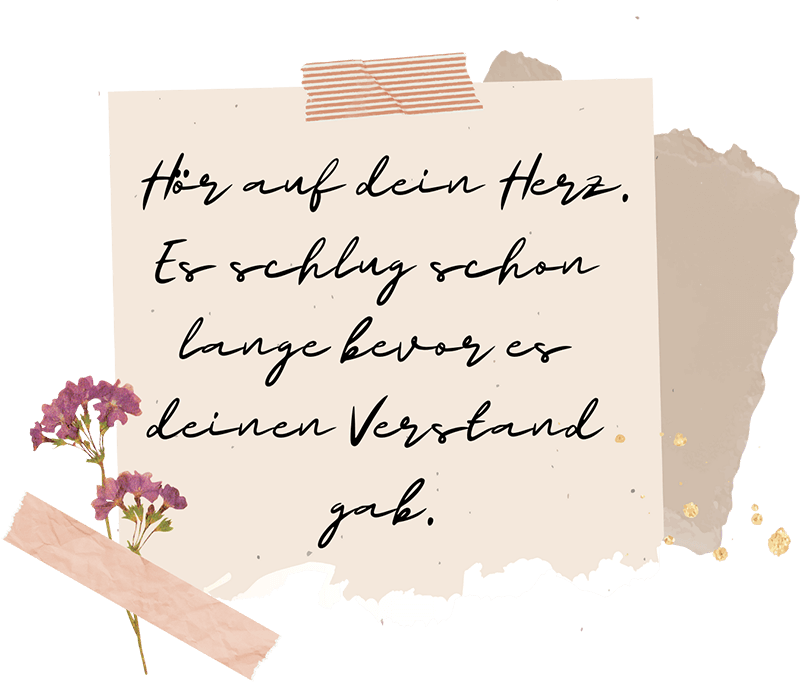 Hör auf dein Herz.
Es schlug schon
lange bevor es
deinen Verstand
gab.